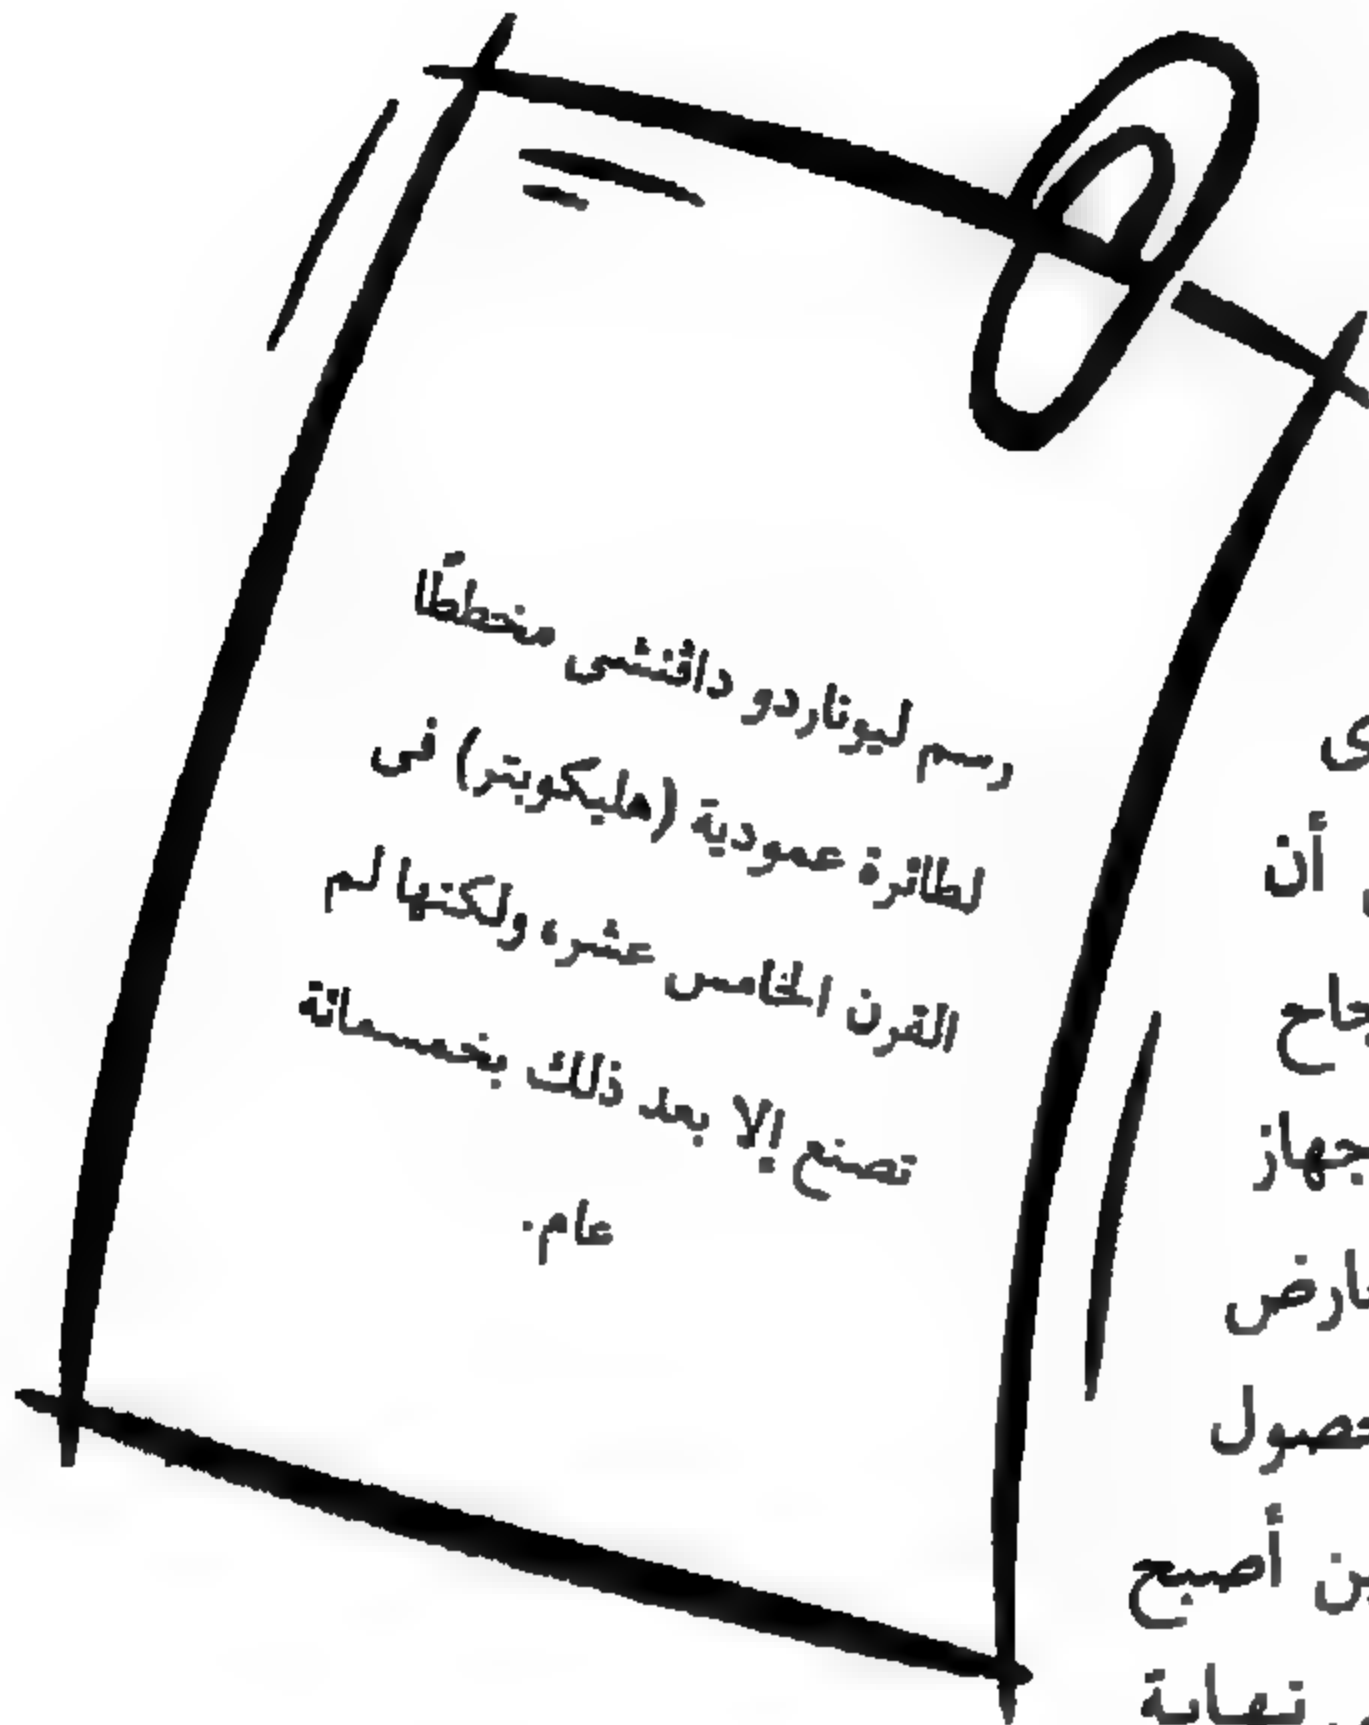 رسم ليوناردو داڤنشى مخططًا
لطائرة عمودية (هليكوبتر) فى
القرن الخامس عشر، ولكنها لم
تصنع إلا بعد ذلك بخمسمائة
عام.
أن
جهاز
أصبح
نهاية